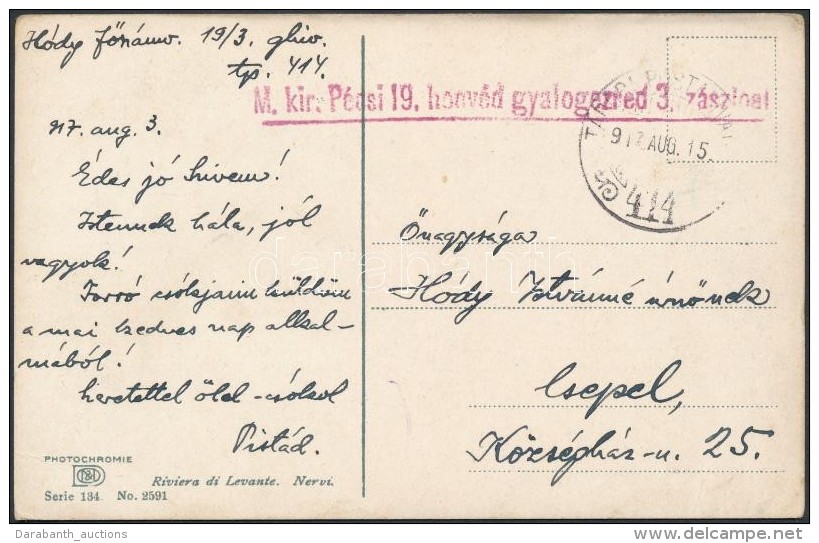 Hódy főhadn. 19/3. ghiv.
tp. 414.
M. kir. Pécsi 19. honvéd gyalogezred 3. zászlóal
TÁBORI POSTAHIVATAL
917 AUG. 15.
414
917. aug. 3.
Édes jó hivem!
Istennek hála, jól
vagyok!
Forró csókjaim küldöm
a mai kedves nap alkal-
mából!
Szeretettel ölel-csókol
Pistád.
Önagysága
Hódy Istvánné úrnőnek
Csepel,
Községház-u. 25.
PHOTOCHROMIE
Riviera di Levante. Nervi.
Serie 134 No. 2591
darabanth
Darabanth_auctions
delcampe.net